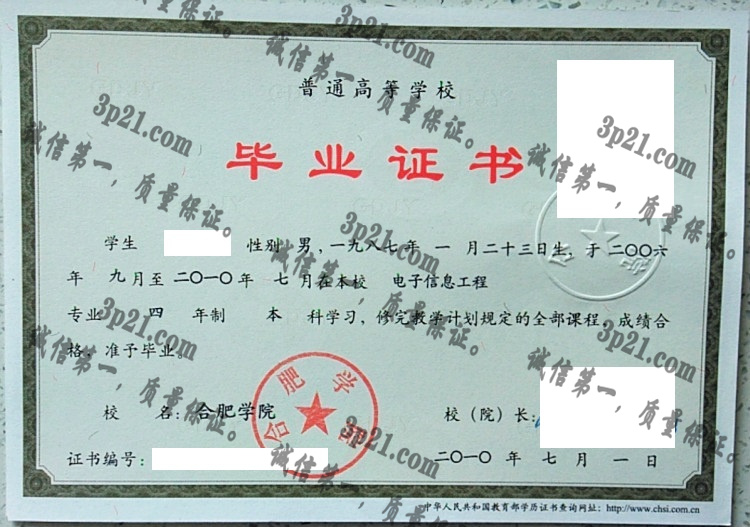 普通高等学校
毕业证书
学生 性别 男，一九八七年 一 月二十三日生，于二〇〇六
年 九月至二〇一〇年 七月在本校 电子信息工程
专业 四 年制 本 科学习，修完教学计划规定的全部课程，成绩合
格，准予毕业。
校 名：合肥学院 校（院）长：
证书编号： 二〇一〇 年 七 月 一 日
中华人民共和国教育部学历证书查询网址：http://www.chsi.com.cn
合肥学院
3p21.com
诚信第一，质量保证。
3p21.com
诚信第一，质量保证。
3p21.com
诚信第一，质量保证。
3p21.com
诚信第一，质量保证。
3p21.com
诚信第一，质量保证。
3p21.com
诚信第一，质量保证。